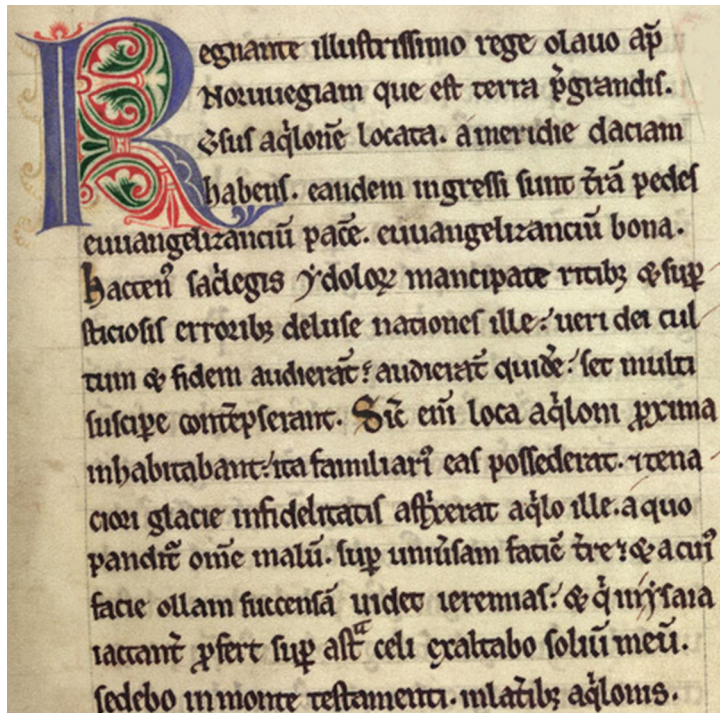 Regnante illustrissimo rege olauo ap̄
Noruuegiam que est terra p̄grandis.
v̓sus aq̓lonē locata. a meridie daciam
habens. eandem ingressi sunt t̓rā pedes
euuangelizanciū pacē. euuangelizanciū bona.
hacten᾽ sac̓legis ẏdoloꝝ mancipate ritibꝫ & suꝑ
sticiosis erroribꝫ deluse nationes ille. ueri dei cul
tum & fidem audierāt? audierāt quidē. set multi
suscipe contēpserant. Sic̄ eni̅ loca aq̓loni ꝓxima
inhabitabant. ita familiari᾽ eas possederat. ⁊ tena
ciori glacie infidelitatis astͥxerat aq̓lo ille. a quo
pandit̄ om̄e malū. suꝑ uniu̓sam faciē t̓re. & a cui᾽
facie ollam succensā uidet ieremias. & q̓ in ẏsaia
iactant̓ ꝓfert suꝑ astᵃ celi exaltabo soliū meū.
sedebo in monte testamenti. in lat̓ibꝫ aq̓lonis.